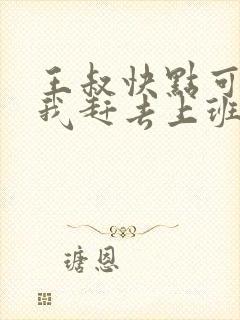 王叔快點可
我赶去上班
瑭恩